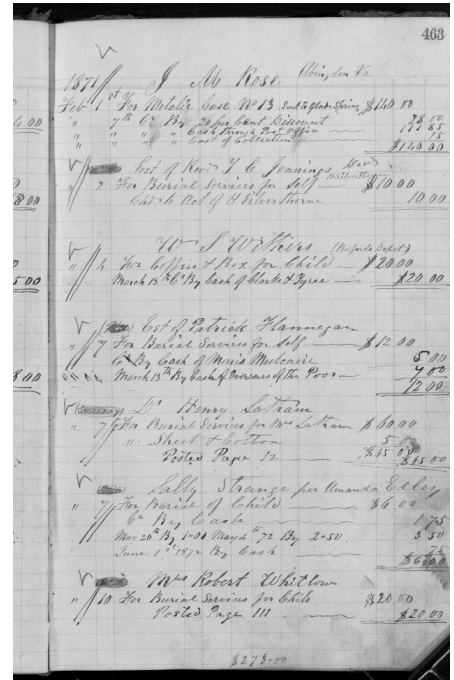 463
1871 J M Rose Abingdon Va
Feb 1st For Metalic Case No 13 Sent to Glade Spring $140 00
" 7th Cr By 20 per Cent Discount 28 00
" " " " Cash through Post Office 111 85
" " " " Cost of Collection 15
$140 00
Est of Revd T C Jennings
" 2 For Burial Services for Self $10 00
Chd to Act of H Silverthorne 10 00
Wm S Withers (Bufords Depot)
" 4 For Coffin & Box for Child $20 00
March 13th Cr By Cash of Clark & Tyree $20 00
Est of Patrick Flannegan
" 7 For Burial Services for Self $12 00
Cr By Cash of Morris Mulcaire 5 00
March 13th By Cash of Overseers of the Poor 7 00
12 00
Dr Henry Latham
" 7 For Burial Services for Mrs Latham $60 00
" Sheet & Cotton 5 00
Posted Page 12 $65 00 $65 00
Sally Strange per Amanda Edley
" 7 For Burial of Child $6 00
Cr By Cash 1 75
Mar 20th By 1.00 May 4th 72 By 2.50 3 50
June 1st 1872 By Cash 75
$6 00
Mrs Robert Whitlow
" 10 For Burial Services for Child $20 00
Posted Page 111 $20 00
$273.00